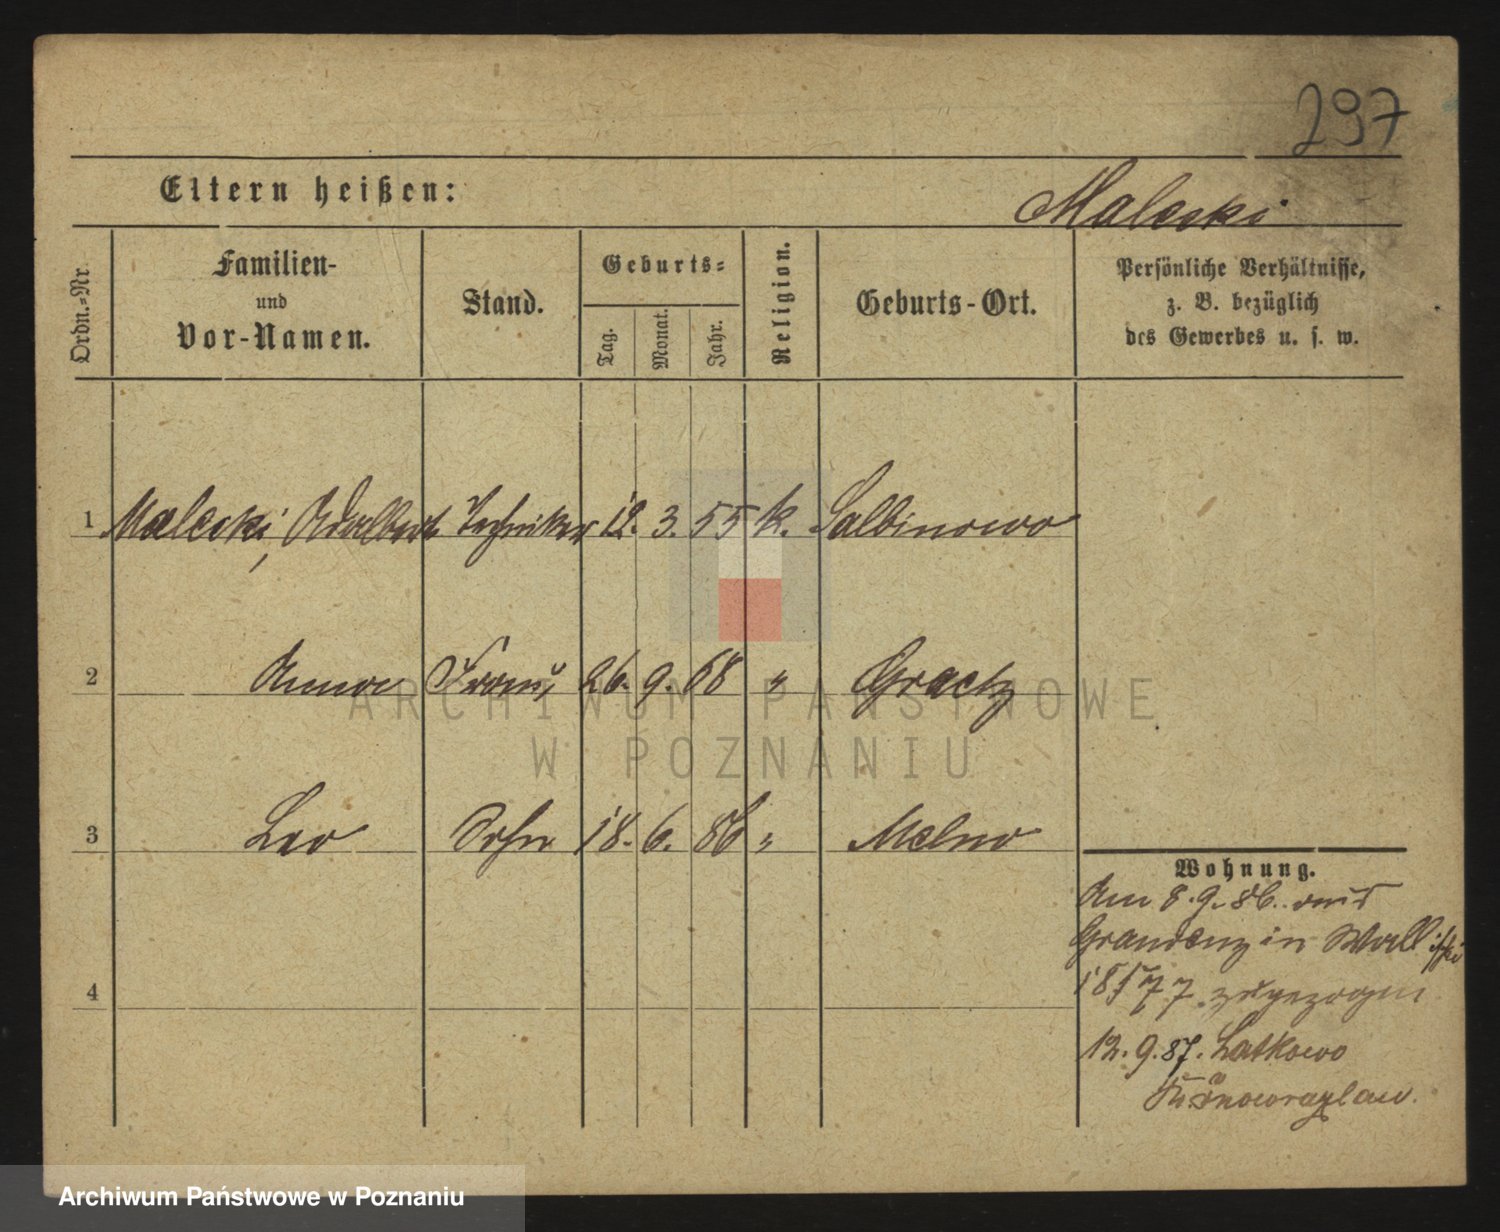 297
Eltern heißen:
Malecki
Ordn.=Nr.
Familien-
und
Vor-Namen.
Stand.
Geburts=
Tag.
Monat.
Jahr.
Religion.
Geburts-Ort.
Persönliche Verhältnisse,
z. B. bezüglich
des Gewerbes u. s. w.
1 Malecki, Adalbert Techniker 12. 3. 55 k. Salbinowo
2 Anna Frau, 26. 9. 68 " Graetz
3 Leo Sohn 18. 6. 86 " Melno
Wohnung.
Am 8.9.86. aus
Graudenz in Wallischei
zugezogen
12.9.87. Latkowo
4
ARCHIWUM PAŃSTWOWE
W POZNANIU
Archiwum Państwowe w Poznaniu